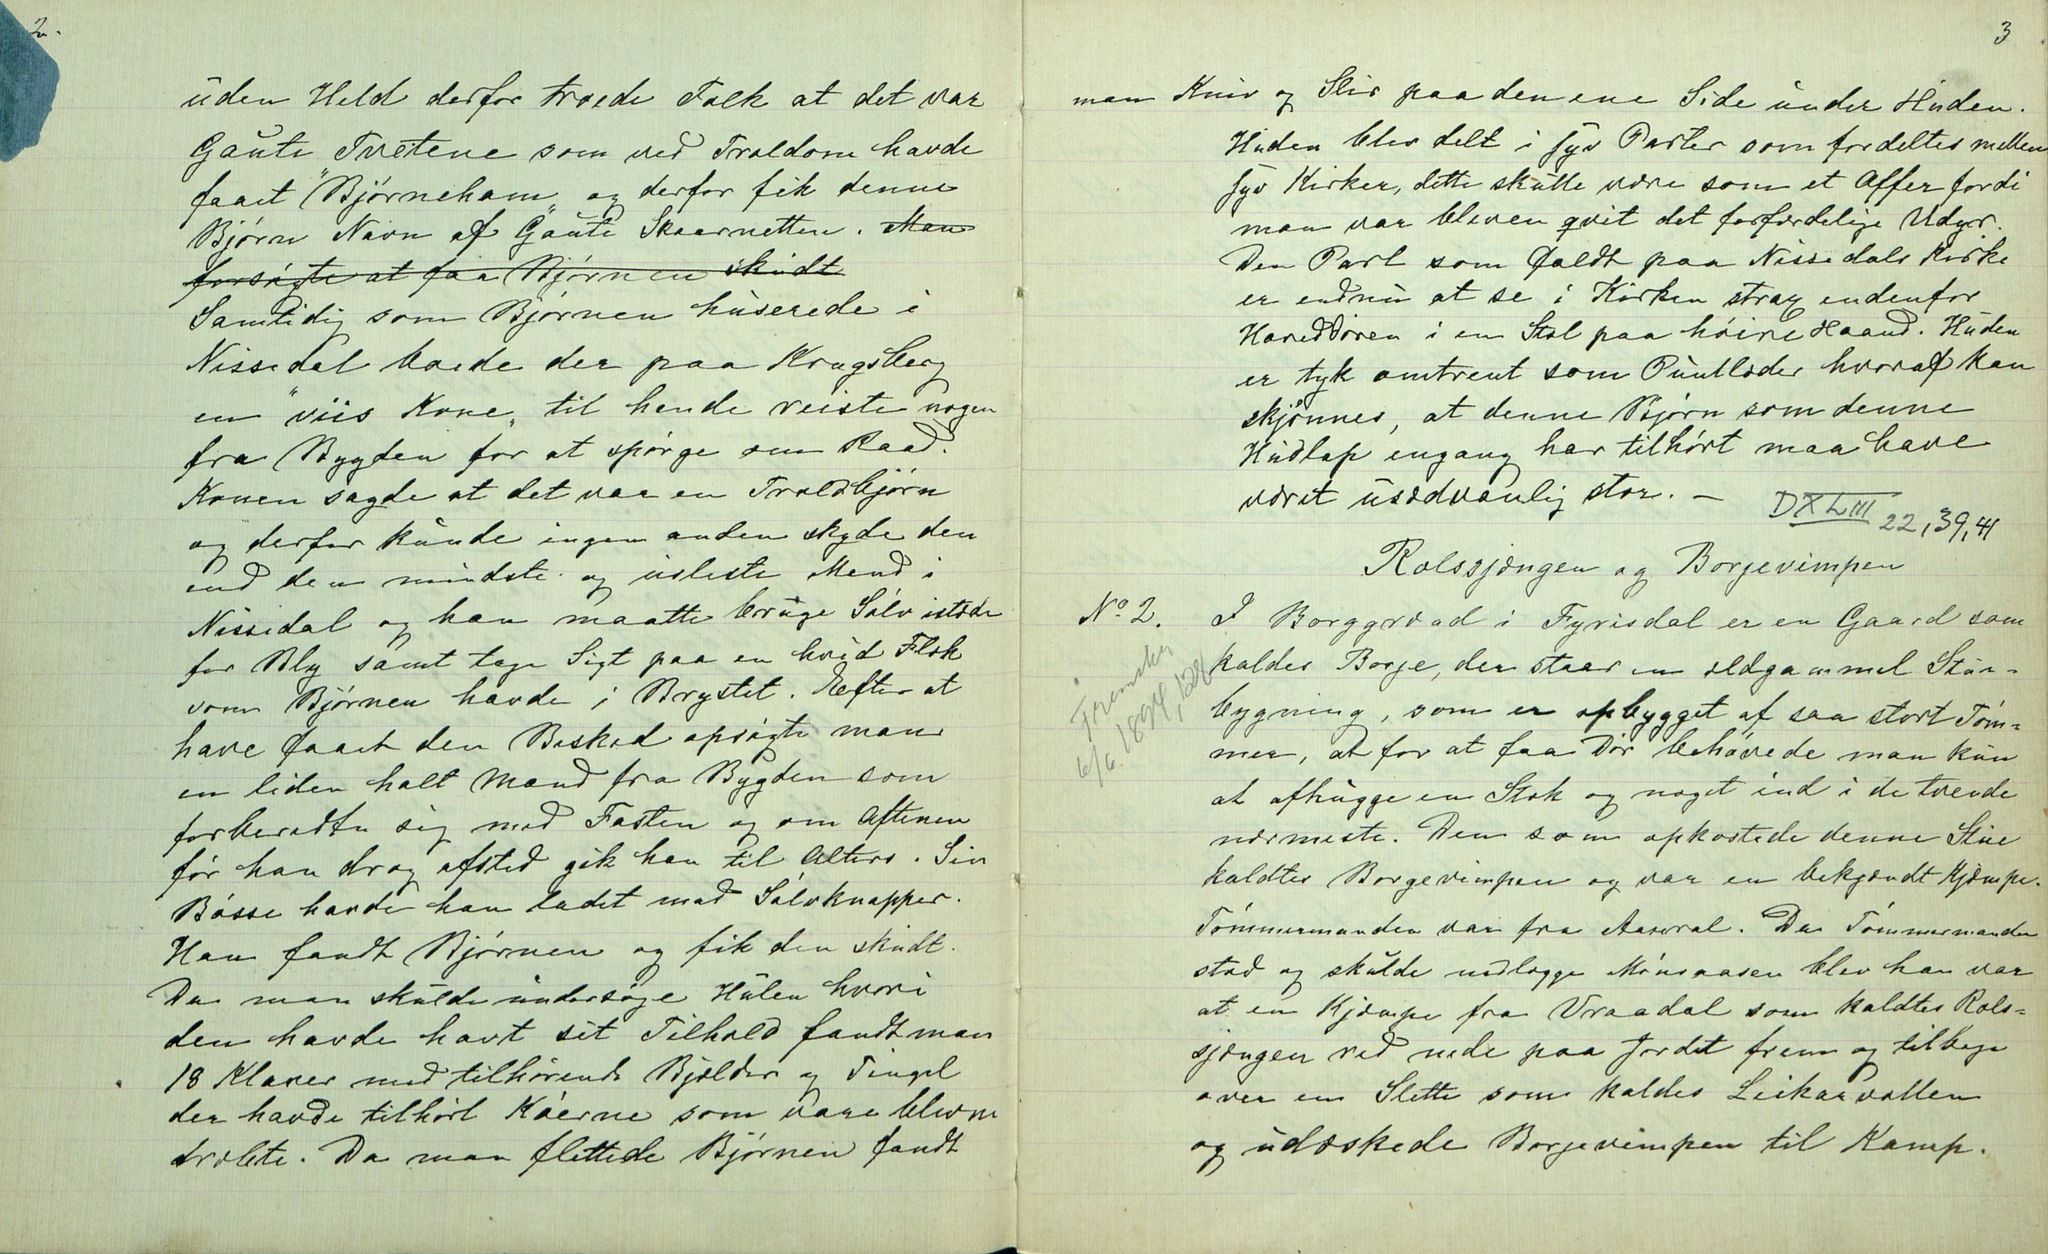 2.
uden Held derfor troede Folk at det var
Gaute Tvetene som ved Troldom havde
faaet "Bjørneham" og derfor fik denne
Bjørn Navn af Gaute Skaarnetten. Man
forsøgte at faa Bjørnen skudt
Samtidig som Bjørnen huserede i
Nissedal boede der paa Kragsberg
en "viis Kone" til hende reiste nogen
fra Bygden for at spørge om Raad.
Konen sagde at det var en Troldbjørn
og derfor kunde ingen anden skyde den
end den mindste og usleste Mend i
Nissedal og han maatte bruge Sølv istæde
for Bly samt tage Sigt paa en hvid Flæk
som Bjørnen havde i Brystet. Efter at
have faaet den Besked opsøgte man
en liden halt Mand fra Bygden som
forberedte sig med Fasten og om Aftenen
før han drog afsted gik han til Alters. Sin
Bøsse havde han ladet med Sølvknapper.
Han fandt Bjørnen og fik den skudt.
Da man skulde undersøge Hulen hvori
den havde havt sit Tilhold fandt man
18 Klaver med tilhørende Bjelder og Tingel
der havde tilhørt Køerne som vare blevne
dræbte. Da man flettede Bjørnen fandt
3
man Kniv og Slir paa den ene Side under Huden.
Huden blev delt i syv Parter som fordeltes mellem
syv Kirker, dette skulle være som et Offer fordi
man var bleven qvit det forfærdelige Udyr.
Den Part som faldt paa Nissedals Kirke
er endnu at se i Kirken strax indenfor
Hoveddøren i en Stol paa høire Haand. Huden
er tyk omtrent som Puntlæder hvoraf kan
skjønnes, at denne Bjørn som denne
Hudlap engang har tilhørt maa have
været usædvanlig stor. –
DXLIII 22, 39, 41
Rolssjængen og Borjevimpen
No. 2. I Borggrænd i Fyrisdal er en Gaard som
kaldes Borje, der staar en ældgammel Stue-
bygning, som er opbygget af saa stort Tøm-
mer, at for at faa Dør behøvede man kun
at afhugge en Stok og noget ind i de tvende
nærmeste. Den som opkostede denne Stue
kaldtes Borgevimpen og var en bekjendt Kjæmpe.
Tømmermanden var fra Aaseral. Da Tømmermanden
stod og skulde nedlægge Mønsaasen blev han var
at en Kjæmpe fra Vraadal som kaldtes Rols-
sjængen red nede paa Jordet frem og tilbage
over en Slette som kaldes Leikarvollen
og udæskede Borjevimpen til Kamp.
6/6. 1894,